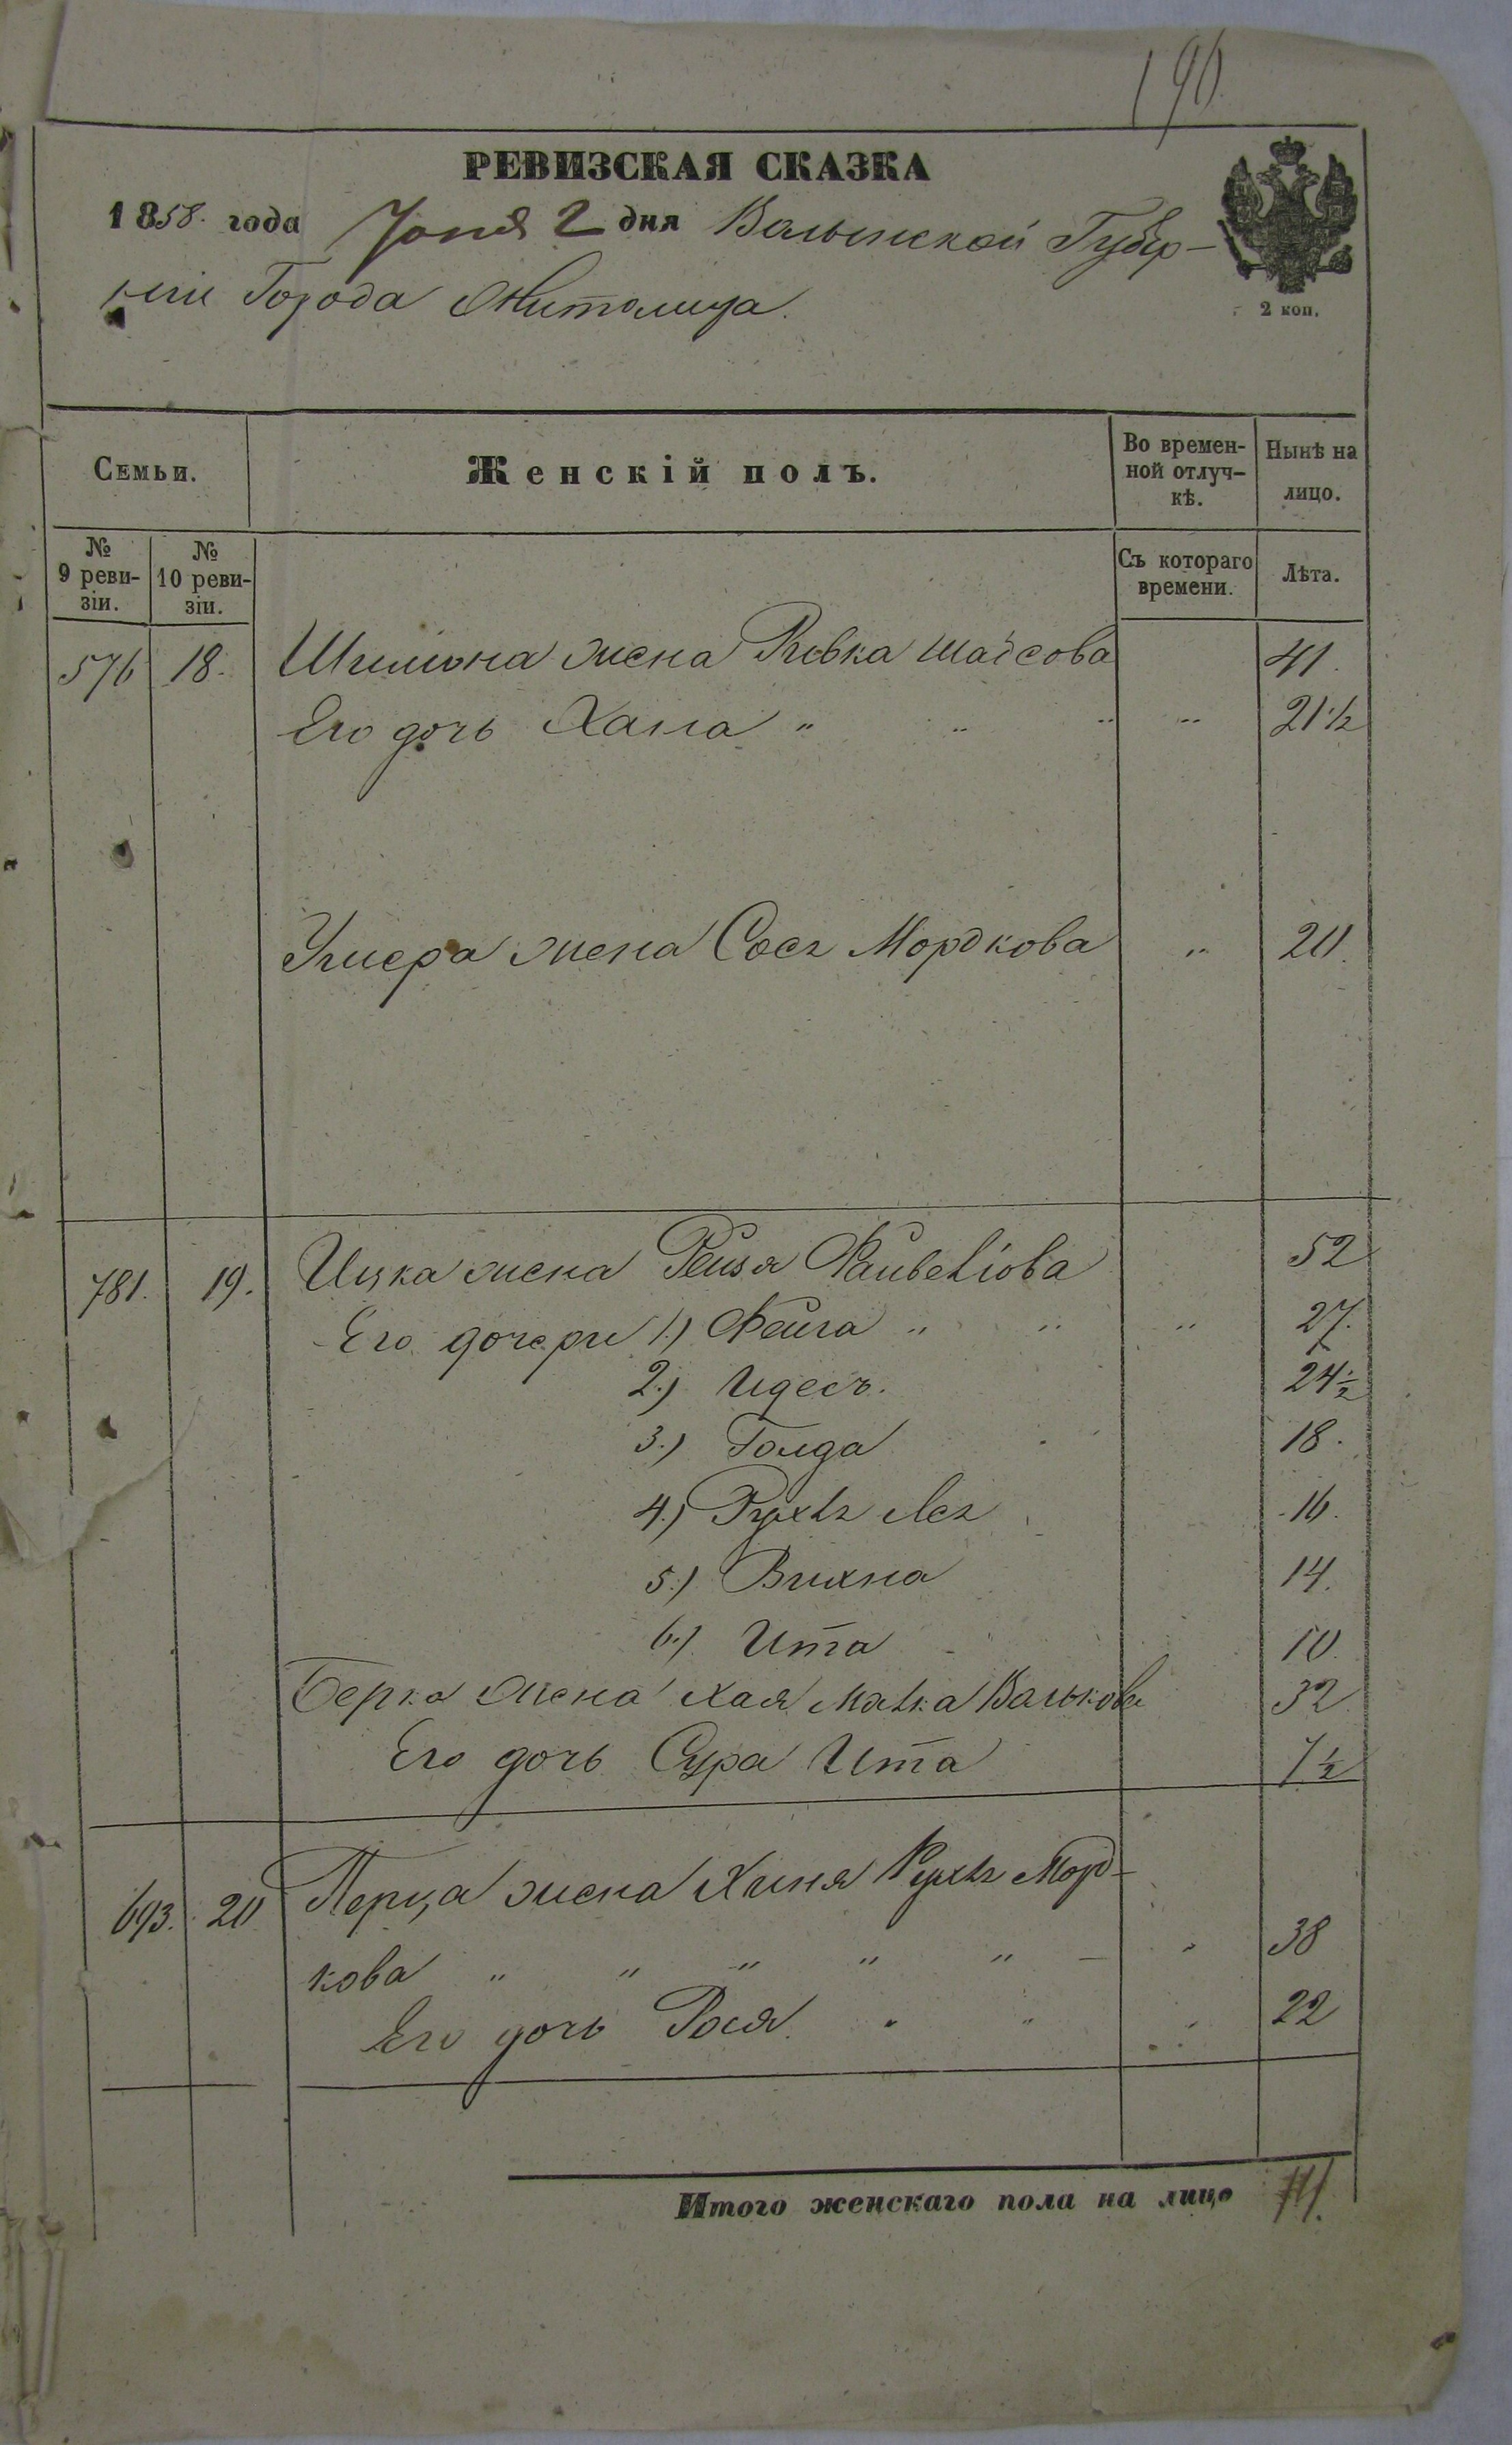 190
РЕВИЗСКАЯ СКАЗКА
1858. года Іюня 2 дня Волынской Губер-
ніи Города Житомира.
2 коп.
Семьи.
Женскій полъ.
Во времен-
ной отлуч-
кѣ.
Нынѣ на
лицо.
№
9 реви-
зіи.
№
10 реви-
зіи.
Съ котораго
времени.
Лѣта.
576 18. жена Ривка 41.
Его дочь Хана " " " " 21½
жена Мордкова " 20.
781. 19. Ицка жена Рейзя 52
Его дочери 1.) Фейга " " " 27.
2.) Идесъ. 24½
3.) Голда 18.
4.) Рухль Лея 16.
5.) Вихна 14.
6.) Ита 10.
Берка жена Хая Малка Волькова 32
Его дочь Сура Ита 7½
693. 20 Перца жена Хиня Рухль Морд-
кова " " " " " — " 38
Его дочь Рося. " " " 22
Итого женскаго пола на лицо